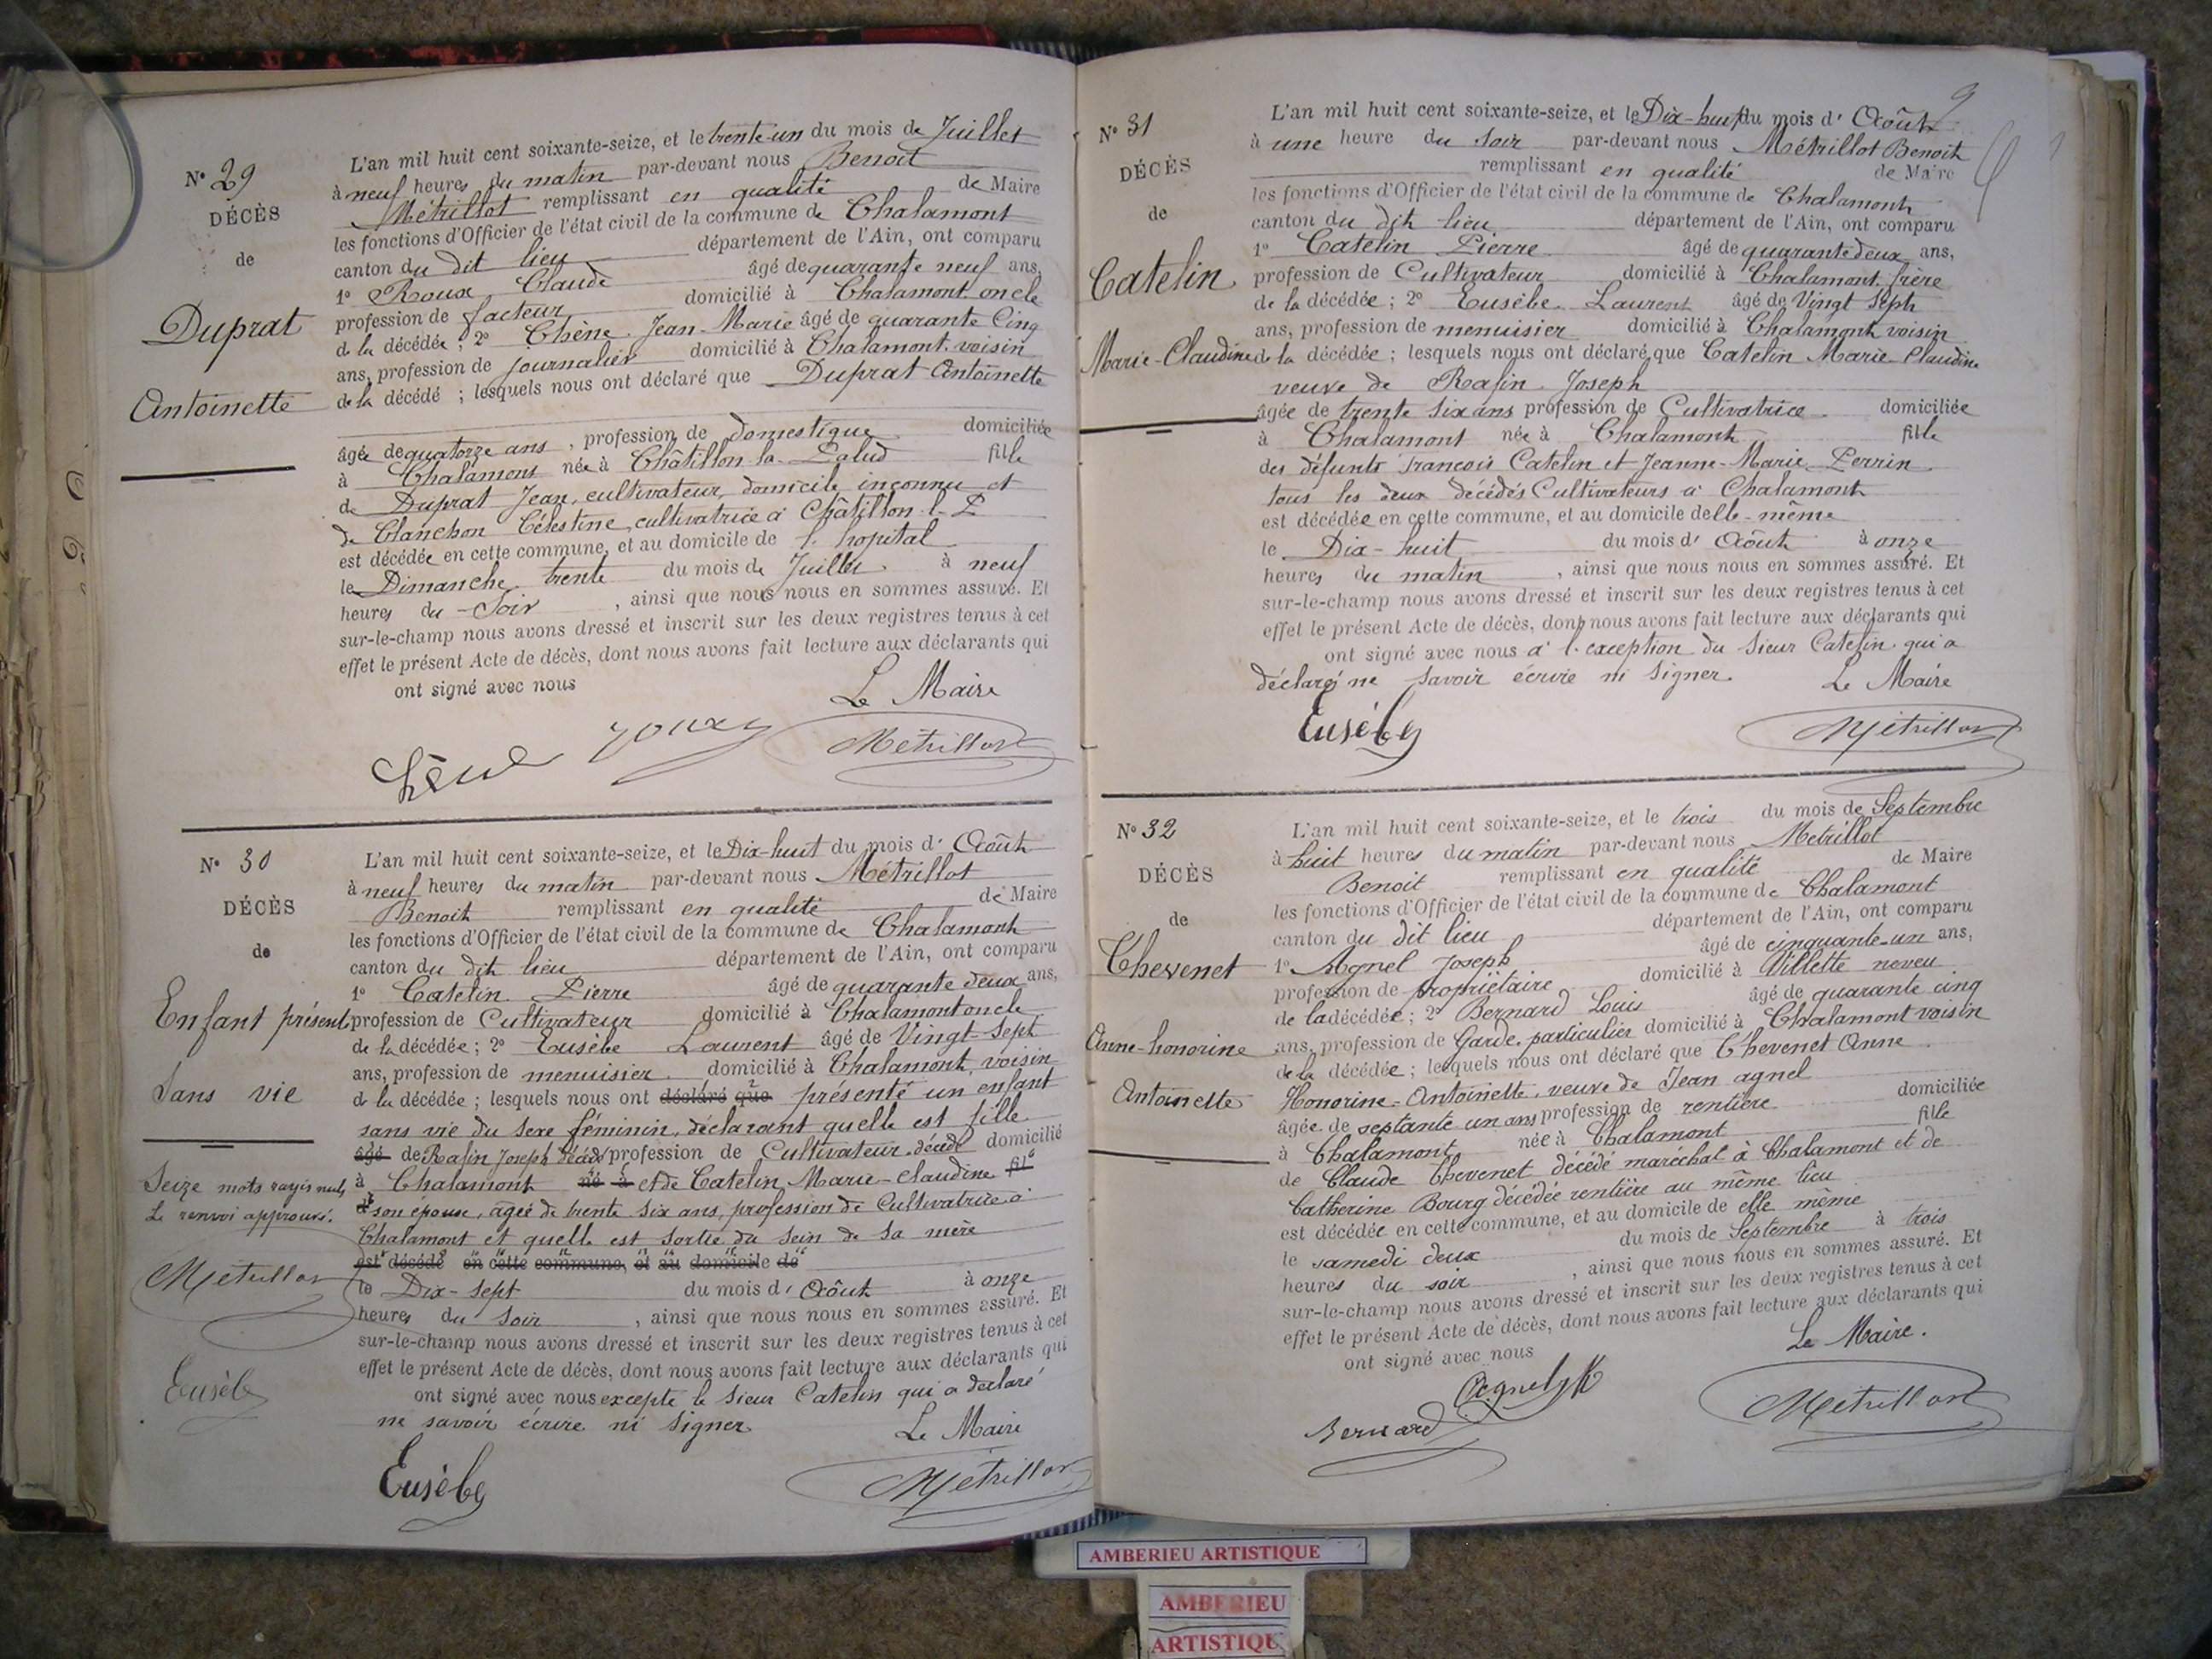 N° 29
DÉCÈS
de
Duprat
Antoinette
L'an mil huit cent soixante-seize, et le trente-un du mois de Juillet
à neuf heures du matin par-devant nous Benoit
Métrillot remplissant en qualité de Maire
les fonctions d'Officier de l'état civil de la commune de Chalamont
canton du dit lieu département de l'Ain, ont comparu
1° Roux Claude âgé de quarante neuf ans,
profession de facteur domicilié à Chalamont oncle
de la décédée ; 2° Chêne Jean-Marie âgé de quarante Cinq
ans, profession de journalier domicilié à Chalamont voisin
de la décédé ; lesquels nous ont déclaré que Duprat Antoinette
âgée de quatorze ans, profession de domestique domiciliée
à Chalamont née à Châtillon-la-Palud fille
de Duprat Jean, cultivateur, domicile inconnu et
de Clanchon Célestine, cultivatrice à Châtillon-l-P
est décédée en cette commune, et au domicile de l'hopital
le Dimanche trente du mois de Juillet à neuf
heures du Soir, ainsi que nous nous en sommes assuré. Et
sur-le-champ nous avons dressé et inscrit sur les deux registres tenus à cet
effet le présent Acte de décès, dont nous avons fait lecture aux déclarants qui
ont signé avec nous Le Maire
Chêne roux Métrillot
N° 30
DÉCÈS
de
Enfant présenté
Sans vie
Seize mots rayés nuls
Le renvoi approuvé.
Métrillot
Eusèbe
L'an mil huit cent soixante-seize, et le Dix-huit du mois d'Août
à neuf heures du matin par-devant nous Métrillot
Benoit remplissant en qualité de Maire
les fonctions d'Officier de l'état civil de la commune de Chalamont
canton du dit lieu département de l'Ain, ont comparu
1° Catelin Pierre âgé de quarante deux ans,
profession de Cultivateur domicilié à Chalamont oncle
de la décédée ; 2° Eusèbe Laurent âgé de Vingt Sept
ans, profession de menuisier domicilié à Chalamont, voisin
de la décédée ; lesquels nous ont déclaré que présenté un enfant
sans vie du Sexe féminin, déclarant quelle est fille
âgé de Rafin Joseph décédé profession de Cultivateur décédé domicilié
à Chalamont né à et de Catelin Marie-Claudine fil
son épouse, agée de trente Six ans, profession de Cultivatrice à
Chalamont et quelle est sortie du sein de sa mère
est décédé en cette commune, et au domicile de
le Dix-sept du mois d'Août à onze
heures du Soir, ainsi que nous nous en sommes assuré. Et
sur-le-champ nous avons dressé et inscrit sur les deux registres tenus à cet
effet le présent Acte de décès, dont nous avons fait lecture aux déclarants qui
ont signé avec nous excepté le Sieur Catelin qui a déclaré
ne savoir écrire ni Signer Le Maire
Eusèbe Métrillot
9
N° 31
DÉCÈS
de
Catelin
Marie-Claudine
L'an mil huit cent soixante-seize, et le Dix-huit du mois d'Août
à une heure du soir par-devant nous Métrillot Benoit
remplissant en qualité de Maire
les fonctions d'Officier de l'état civil de la commune de Chalamont
canton du dit lieu département de l'Ain, ont comparu
1° Catelin Pierre âgé de quarante deux ans,
profession de Cultivateur domicilié à Chalamont frère
de la décédée ; 2° Eusèbe Laurent âgé de Vingt Sept
ans, profession de menuisier domicilié à Chalamont voisin
de la décédée ; lesquels nous ont déclaré que Catelin Marie-Claudine
veuve de Rafin Joseph
âgée de trente six ans profession de Cultivatrice domiciliée
à Chalamont née à Chalamont fille
des défunts francois Catelin et Jeanne-Marie Perrin
tous les deux décédés Cultivateurs à Chalamont
est décédée en cette commune, et au domicile delle-même
le Dix-huit du mois d'Août à onze
heures du matin, ainsi que nous nous en sommes assuré. Et
sur-le-champ nous avons dressé et inscrit sur les deux registres tenus à cet
effet le présent Acte de décès, dont nous avons fait lecture aux déclarants qui
ont signé avec nous à l'exception du Sieur Catelin qui a
déclaré ne savoir écrire ni Signer. Le Maire
Eusèbe Métrillot
N° 32
DÉCÈS
de
Chevenet
Anne-honorine
Antoinette
L'an mil huit cent soixante-seize, et le trois du mois de Septembre
à huit heures du matin par-devant nous Metrillot
Benoit remplissant en qualité de Maire
les fonctions d'Officier de l'état civil de la commune de Chalamont
canton du dit lieu département de l'Ain, ont comparu
1° Agnel Joseph âgé de cinquante-un ans,
profession de propriétaire domicilié à Villette neveu
de la décédée ; 2° Bernard Louis âgé de quarante cinq
ans, profession de Garde particulier domicilié à Chalamont voisin
de la décédée ; lesquels nous ont déclaré que Chevenet Anne
Honorine-Antoinette, veuve de Jean agnel
âgée de septante un ans profession de rentière domiciliée
à Chalamont née à Chalamont fille
de Claude Chevenet décédé maréchal à Chalamont et de
Catherine Bourg décédée rentière au même lieu
est décédée en cette commune, et au domicile de elle même
le samedi deux du mois de Septembre à trois
heures du soir, ainsi que nous nous en sommes assuré. Et
sur-le-champ nous avons dressé et inscrit sur les deux registres tenus à cet
effet le présent Acte de décès, dont nous avons fait lecture aux déclarants qui
ont signé avec nous Le Maire.
Bernard Métrillot
AMBERIEU ARTISTIQUE
AMBERIEU
ARTISTIQUE